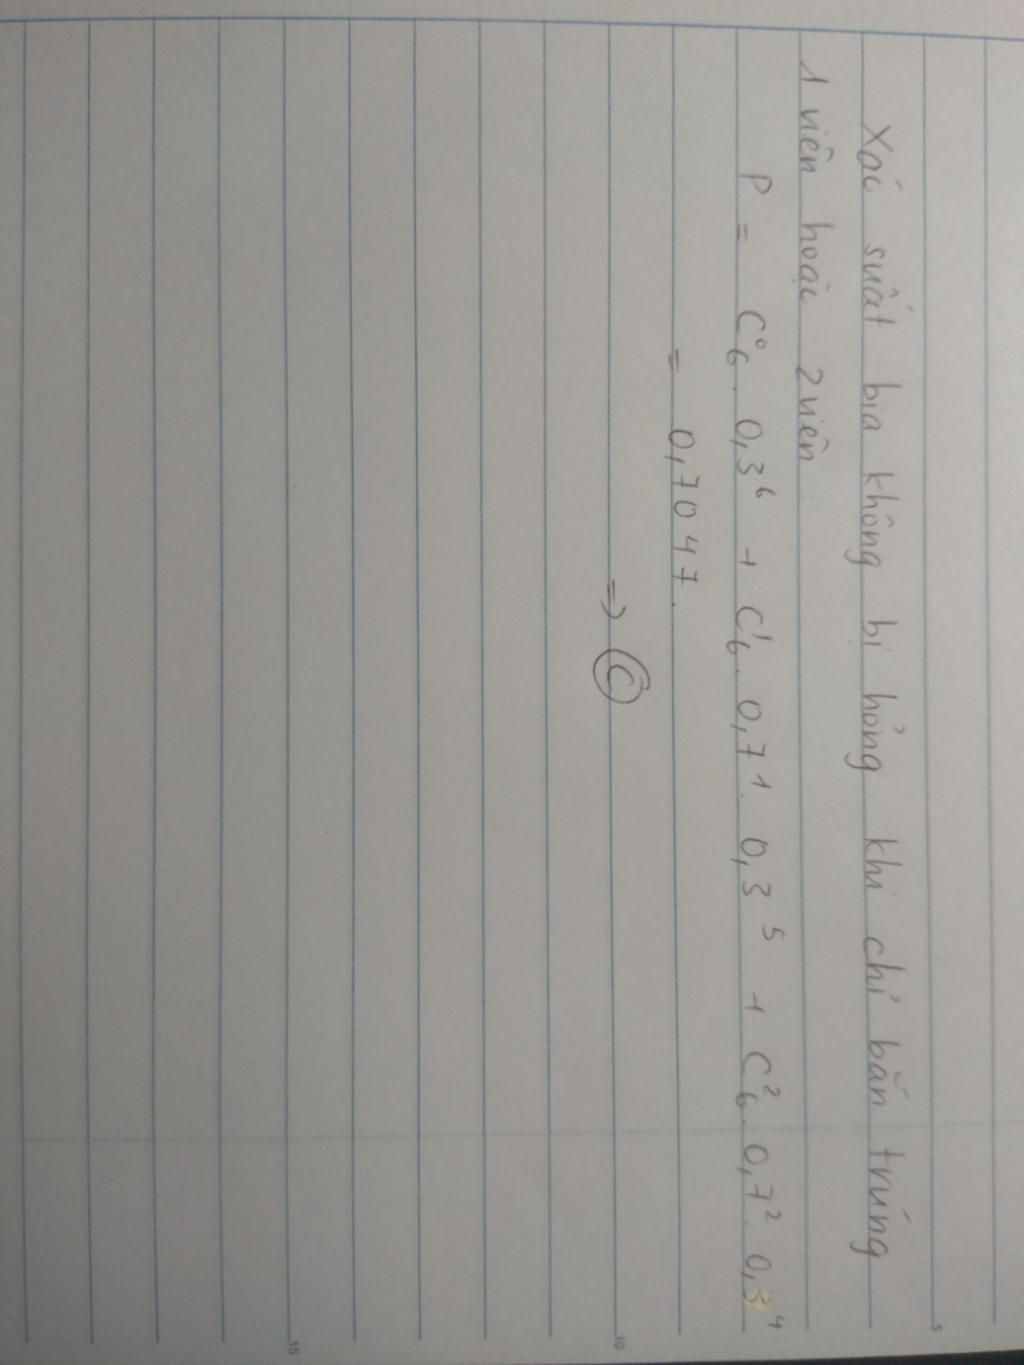 Xác suất bia không bị hỏng khi chỉ bắn trúng
1 viên hoặc 2 viên.
P = C⁰₆ . 0,3⁶ + C¹₆ . 0,7¹ . 0,3⁵ + C²₆ . 0,7² . 0,3⁴
= 0,7047.
⇒ C
5
10
15